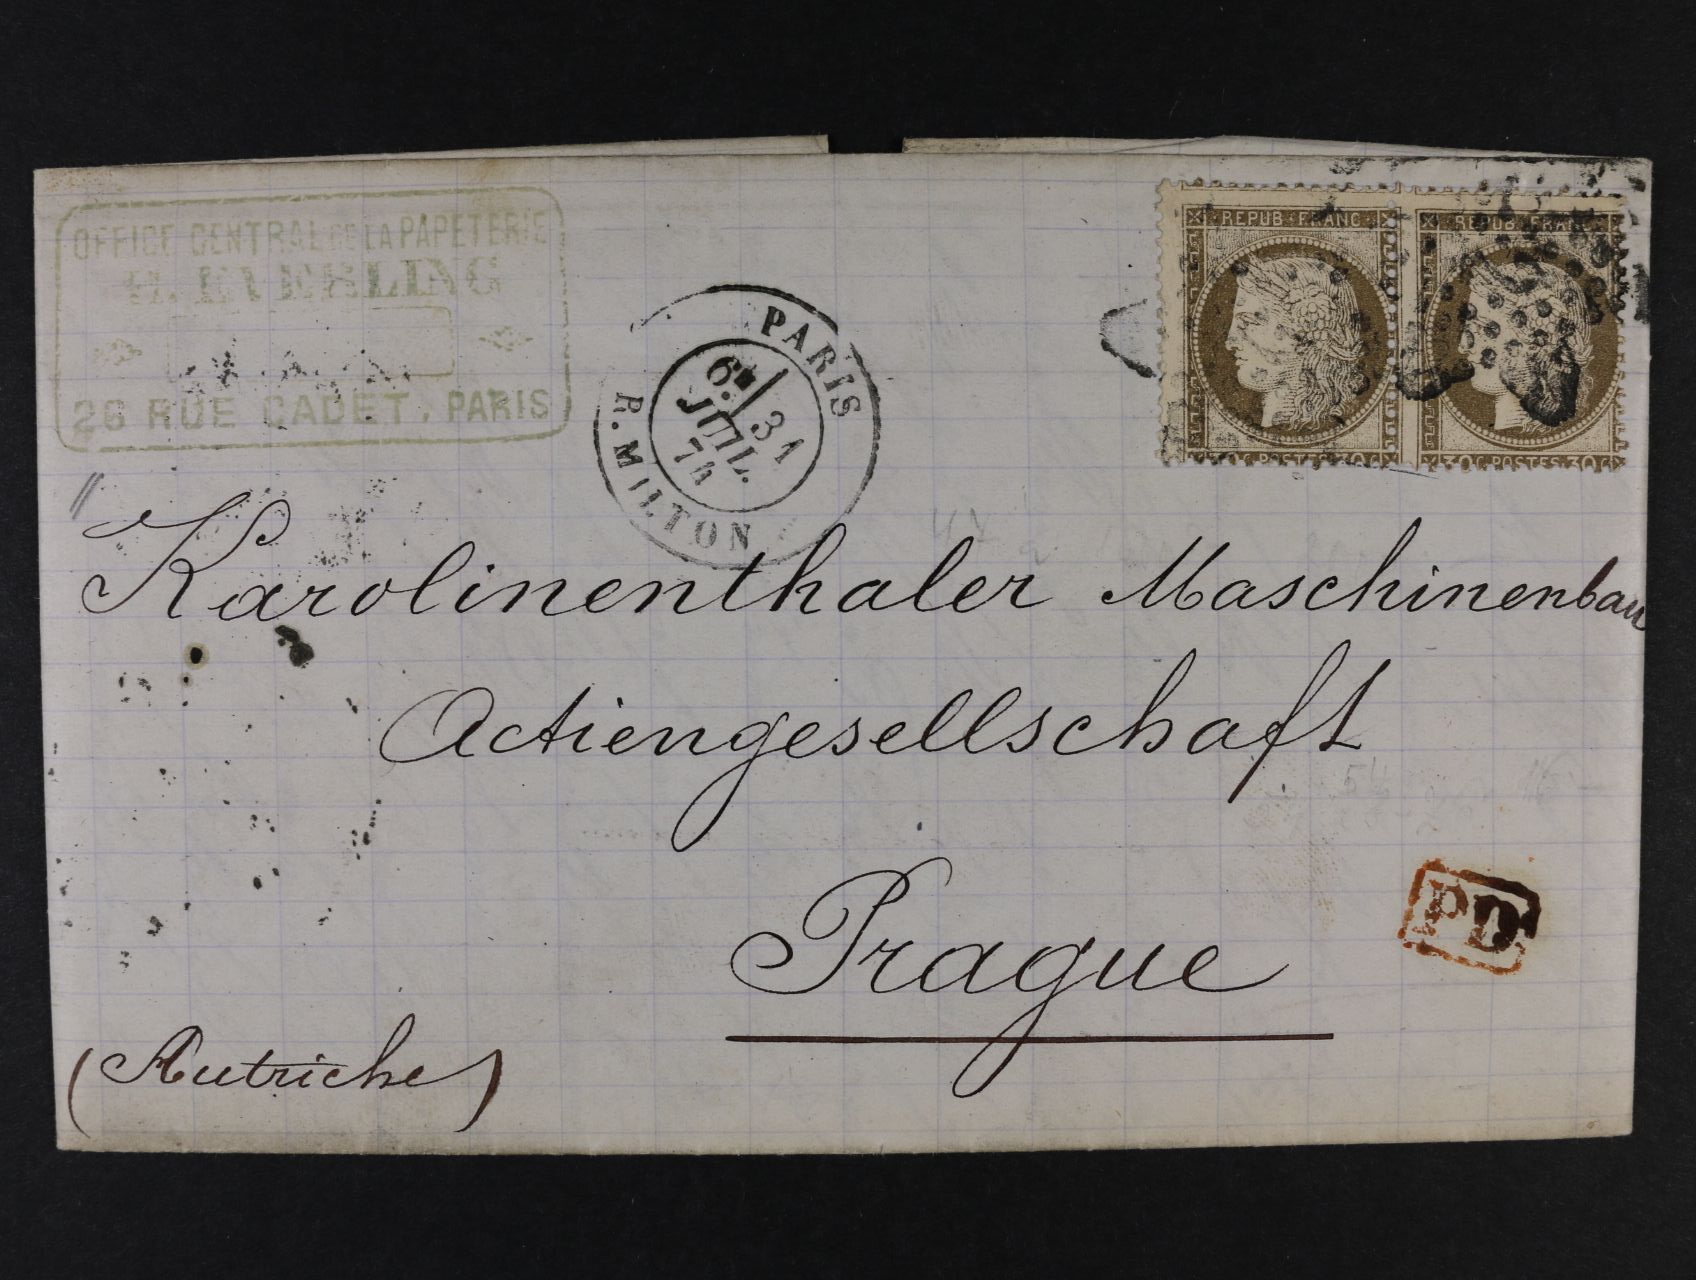 OFFICE CENTRAL DE LA PAPETERIE
H. EVERLING
26 RUE CADET, PARIS
PARIS
6E
31
JUIL.
74
R. MILTON
REPUB FRANC
30 C POSTES 30 C
REPUB FRANC
30 C POSTES 30 C
Karolinenthaler Maschinenbau
Actiengesellschaft
Prague
PD
(Autriche)